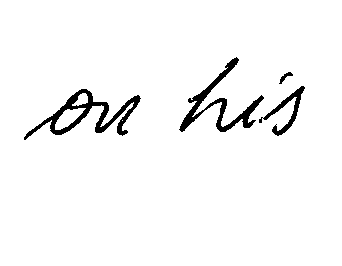 on his